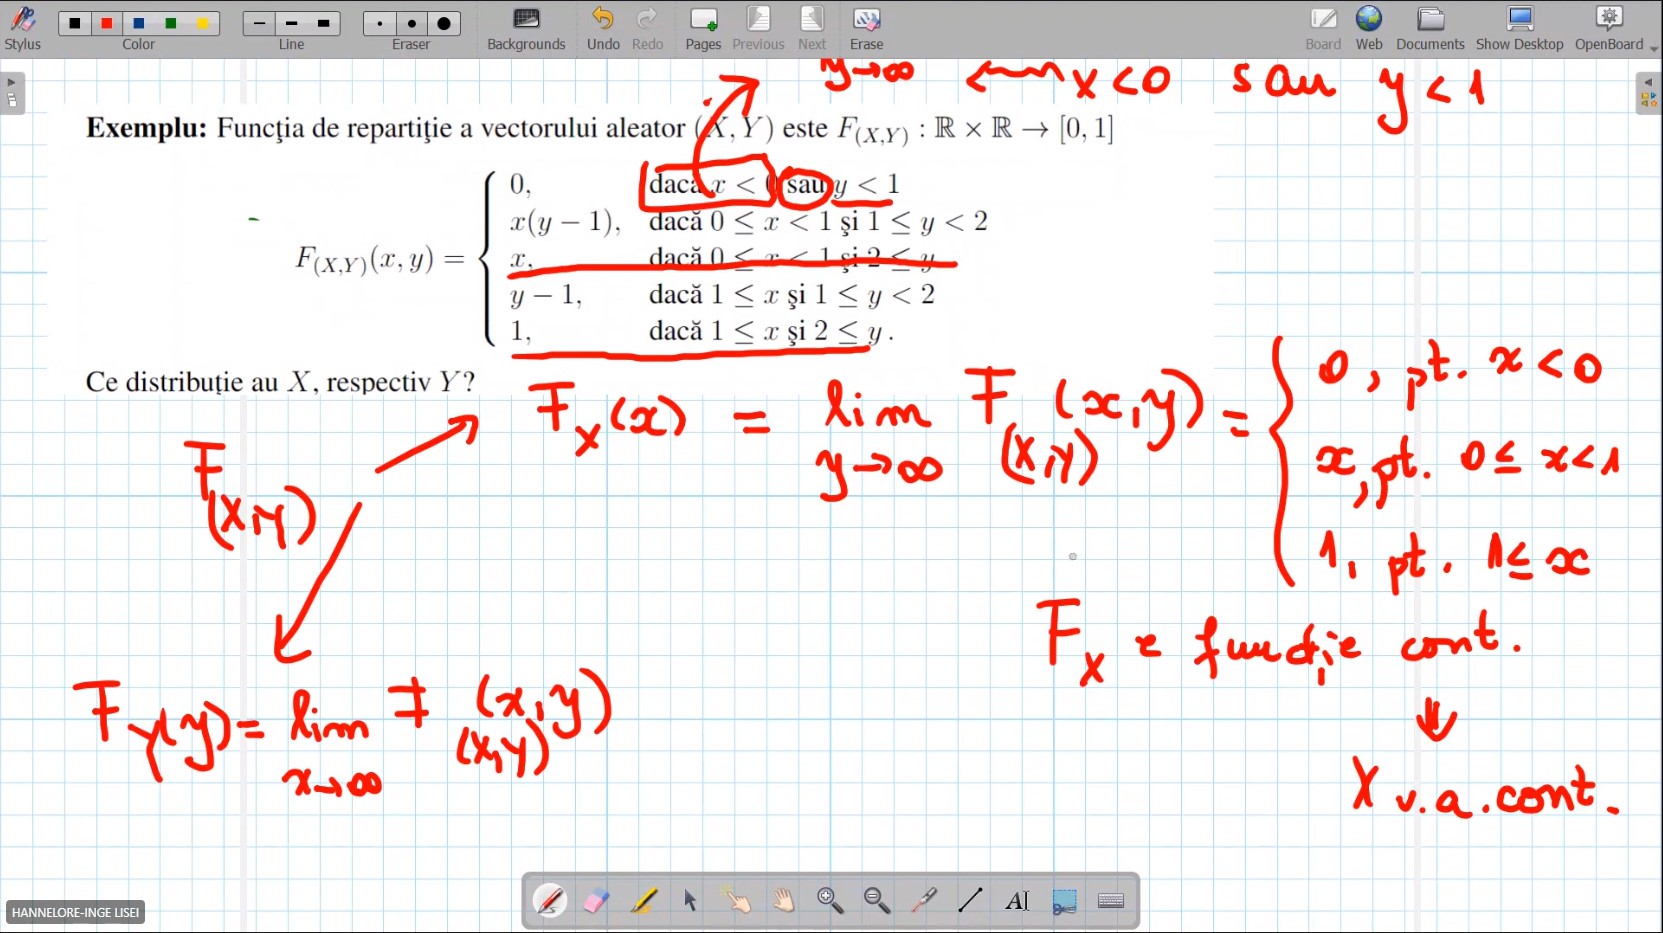 Stylus Color Line Eraser Backgrounds Undo Redo Pages Previous Next Erase Board Web Documents Show Desktop OpenBoard
y→∞ ← x<0 sau y<1
Exemplu: Funcția de repartiție a vectorului aleator (X, Y) este F_(X,Y) : ℝ × ℝ → [0, 1]
0, dacă x < 0 sau y < 1
x(y − 1), dacă 0 ≤ x < 1 și 1 ≤ y < 2
F_(X,Y)(x, y) = { x, dacă 0 ≤ x < 1 și 2 ≤ y
y − 1, dacă 1 ≤ x și 1 ≤ y < 2
1, dacă 1 ≤ x și 2 ≤ y .
Ce distribuție au X, respectiv Y?
F_X(x) = lim y→∞ F_(X,Y)(x,y) = {
0, pt. x<0
x, pt. 0≤x<1
1, pt. 1≤x
F_(X,Y)
F_X e funcție cont.
⇓
F_Y(y) = lim x→∞ F_(X,Y)(x,y)
X v.a. cont.
HANNELORE-INGE LISEI